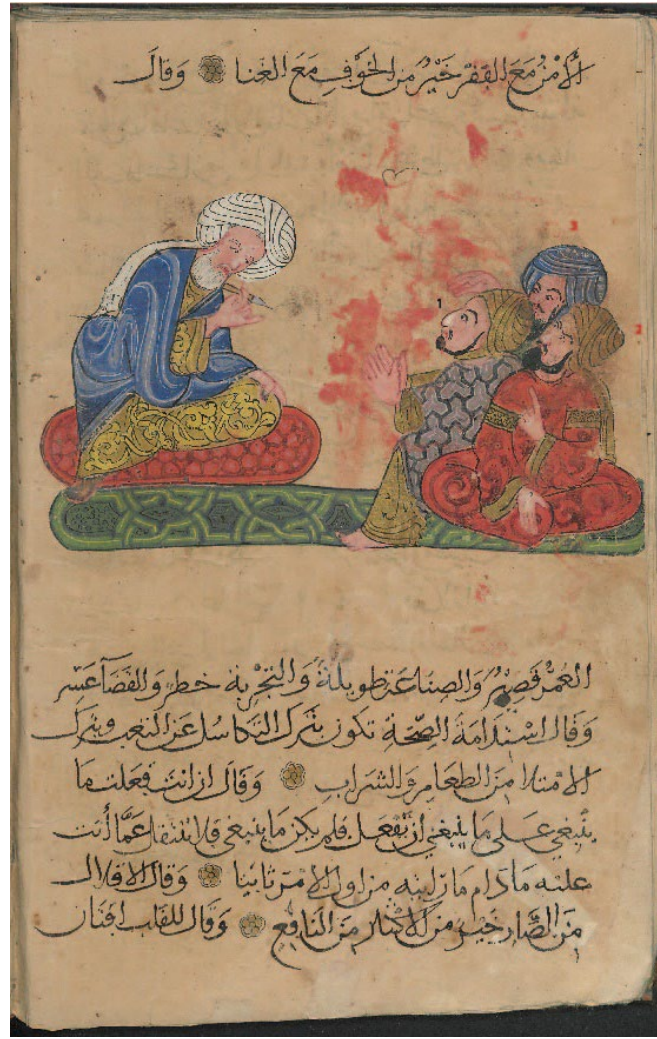 الأَمْنُ مَعَ الفَقْرِ خَيْرٌ مِنَ الخَوْفِ مَعَ الغِنا وَقالَ
3
1
2
العُمْرُ قَصِيْرٌ وَالصِنَاعَة طَوِيلَةٌ وَالتجْرِبَة خطر وَالقَضَآ عَسِر
وَقَالَ اسْتِدَامَةُ الصِّحَّةِ تكون بتَرك التكاسُل عَن التعب وبترك
الامْتلا مِنَ الطعَامِ وَالشرَابِ وَقَالَ ان انتَ فَعَلتَ مَا
يَنْبَغي عَلى مَا يَنْبَغي ان يُفْعَل فلم يكن مَا ينبغي فلا تنتقل عَمَّا أنت
عليْه مَا دَام مَا رَايته من اول الامْر ثابتا وَقَالَ الاقلال
مِنَ الضَّار خَيْر مِنَ الاكْثار مِنَ النَافِع وَقَالَ للقلب افتان